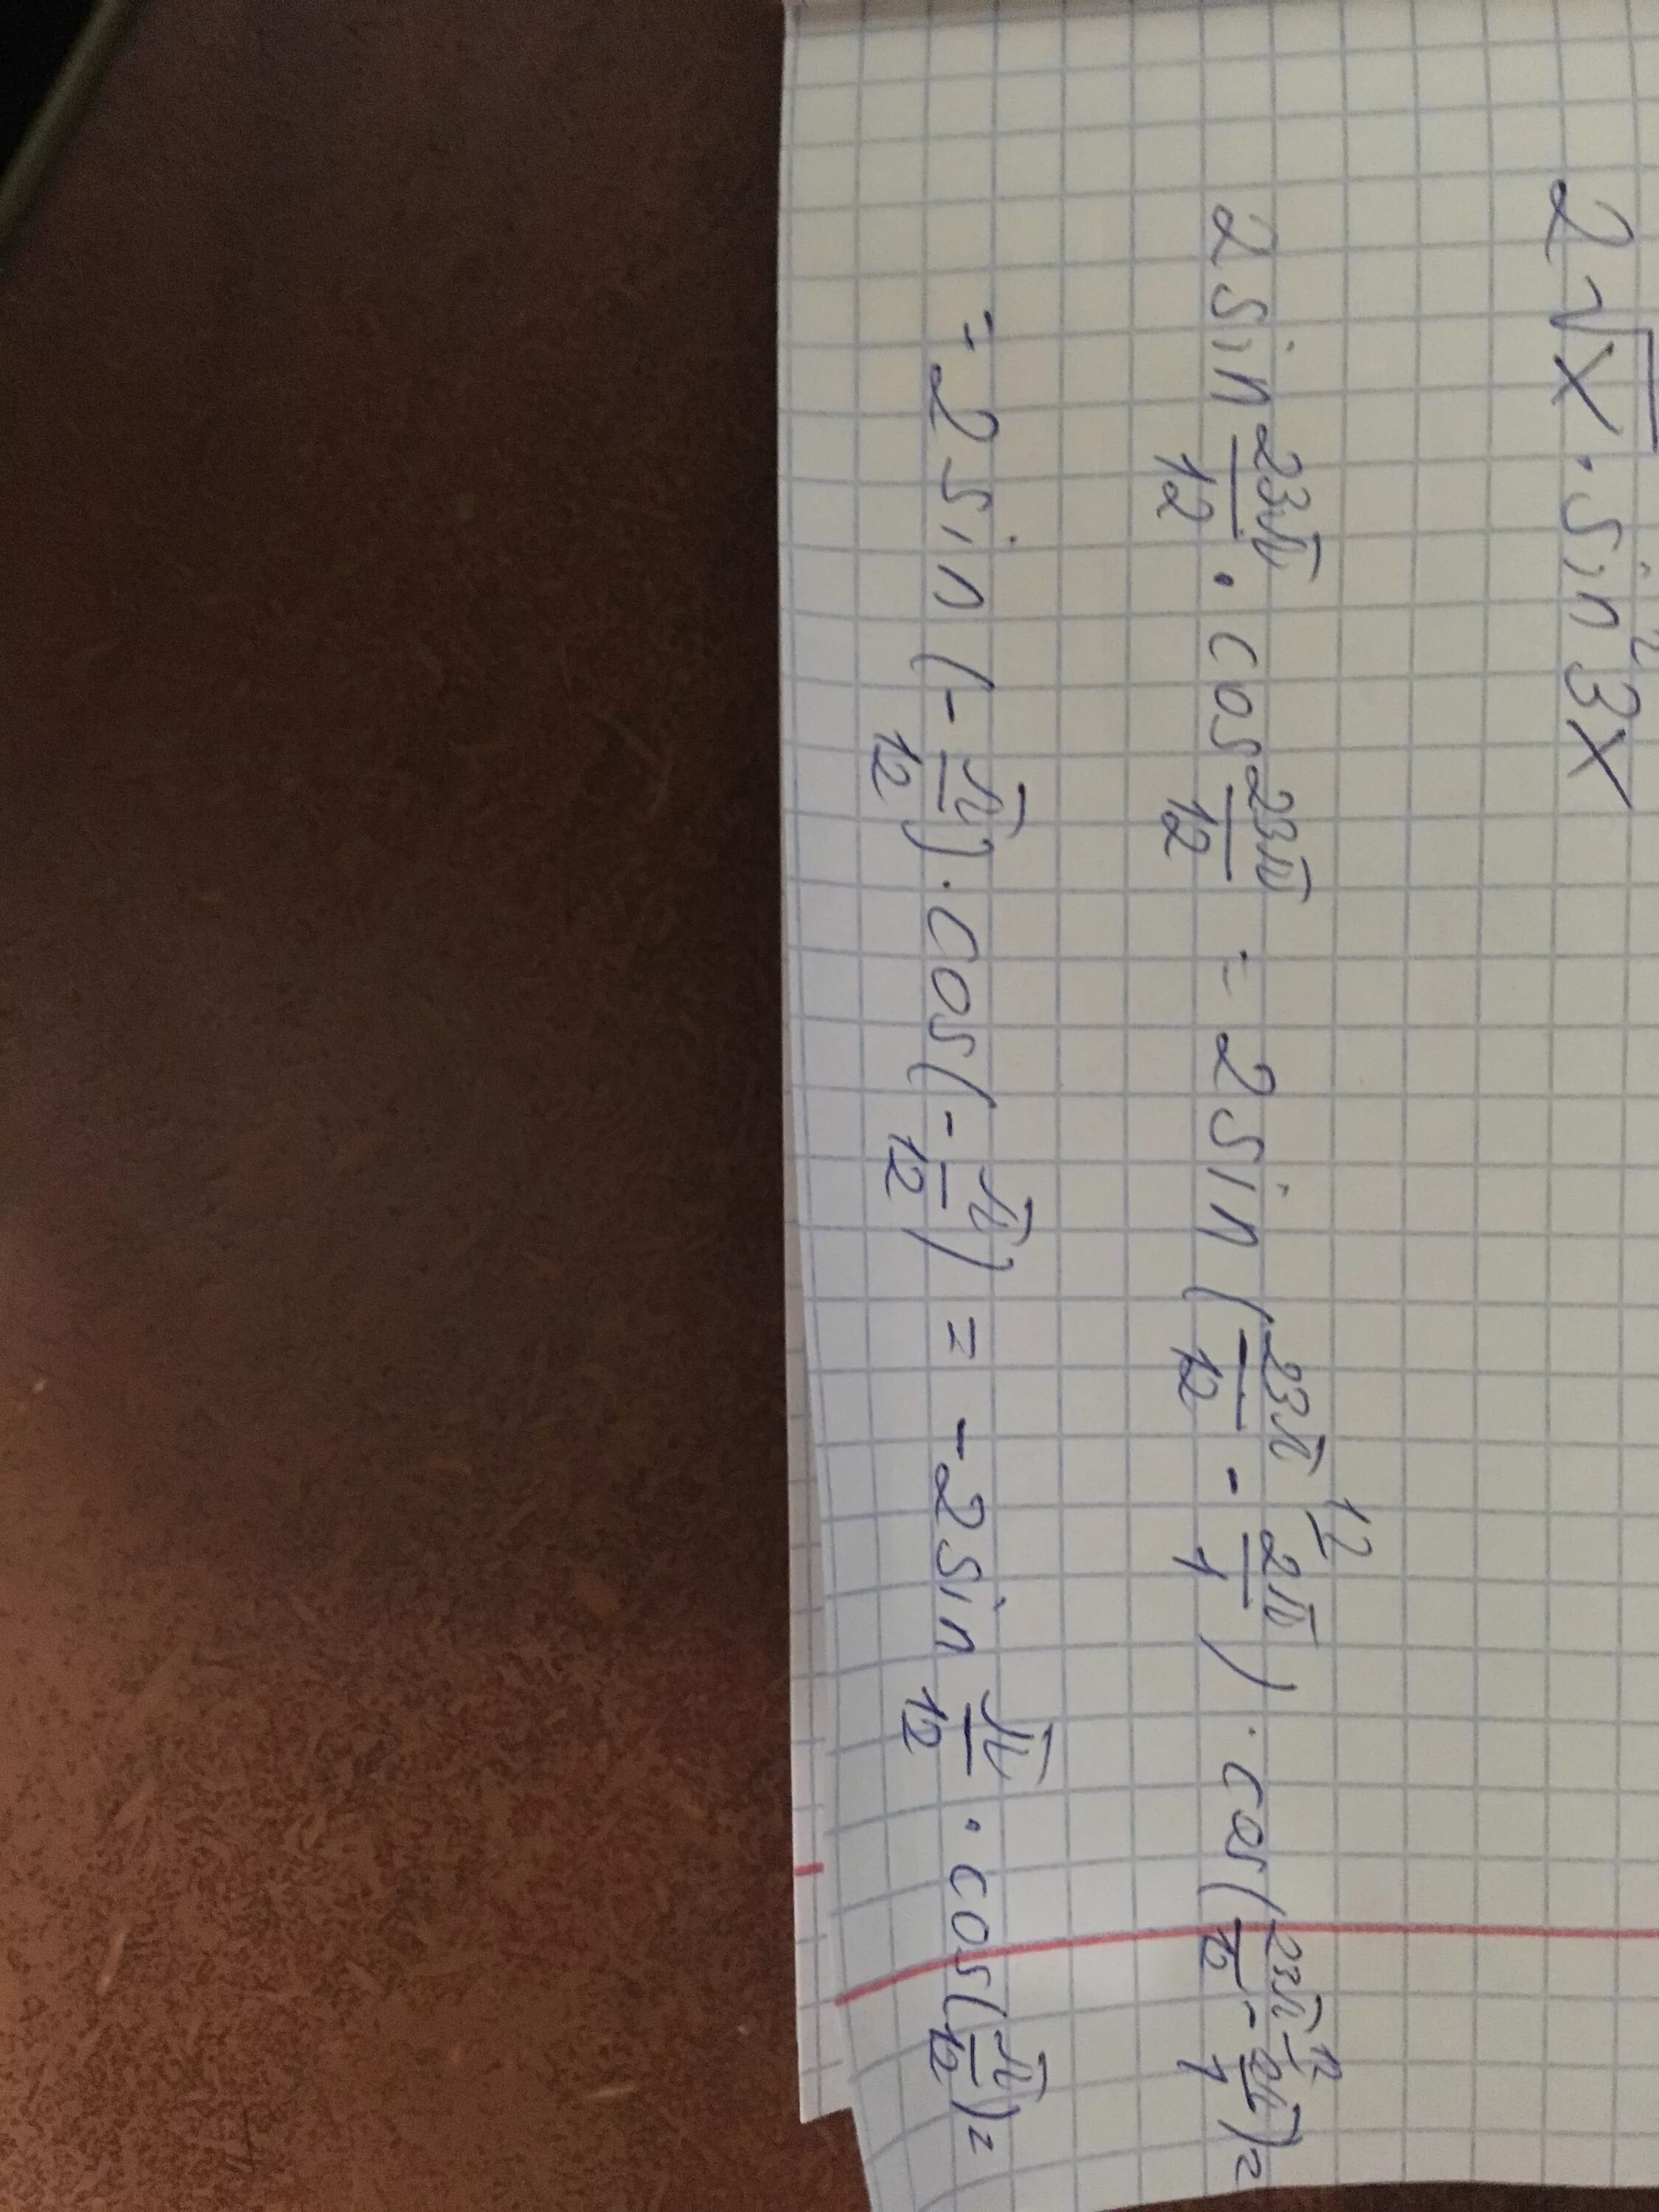 2√x · sin² 3x
2 sin 23π/12 · cos 23π/12 = 2 sin (23π/12 - 2π/1 \12) · cos (23π/12 - 2π/1 \12) =
= 2 sin (-π/12) · cos (-π/12) = -2 sin π/12 · cos (π/12) =